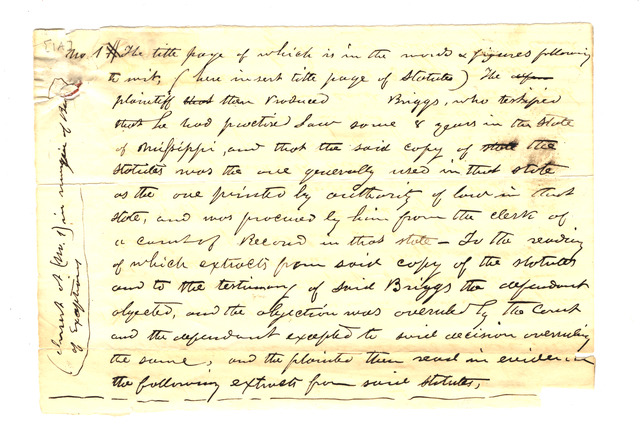 No. 1 The title page of which is in the words & figures following
to wit, (here insert title page of Statutes) The
plaintiff that then Produced Briggs, who testified
that he had practised Law some 8 years in the State
of Mississippi, and that the said copy of the
Statutes was the one generally used in that state
as the one printed by authority of law in that
state, and was procured by him from the clerk of
a court of Record in that state — To the reading
of which extracts from said copy of the statutes
and to the testimony of said Briggs the defendant
objected, and the objection was overruled by the Court
and the defendant excepted to said decision overruling
the same, and the plaintiff then read in evidence
the following extracts from said Statutes,
(Insert A (No. 1) in margin of
of Exceptions